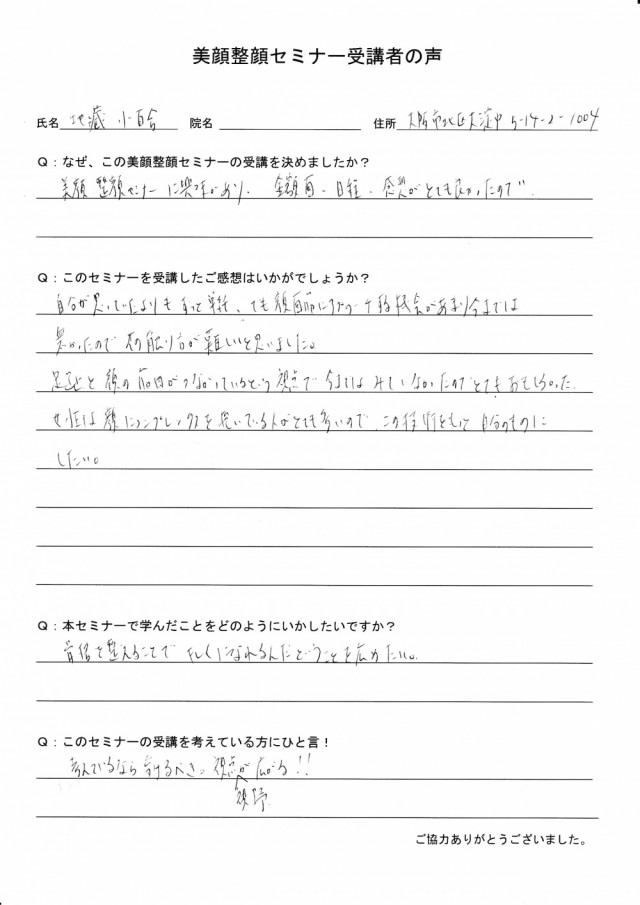 美顔整顔セミナー受講者の声
氏名 地蔵 小百合 院名 住所 大阪市北区大淀中5-14-2-1004
Q：なぜ、この美顔整顔セミナーの受講を決めましたか？
美顔整顔セミナーに興味があり、金額面、日程、感じがとても良かったので
Q：このセミナーを受講したご感想はいかがでしょうか？
自分が思っていたよりもずっと単純、でも顔面筋にアプローチする機会があまり今までは
無かったので力の触り方が難しいと思いました。
足延と顔の筋肉がつながっているという視点で今まではみていなかったのでとてもおもしろかった。
女性は顔にコンプレックスを抱いている人がとても多いので、この技術をもって自分のものに
したい。
Q：本セミナーで学んだことをどのようにいかしたいですか？
骨格を整えることで 美しくなれるんだということを広めたい。
Q：このセミナーの受講を考えている方にひと言！
考えているなら 受けるべき。視点が広がる!!
視野
ご協力ありがとうございました。